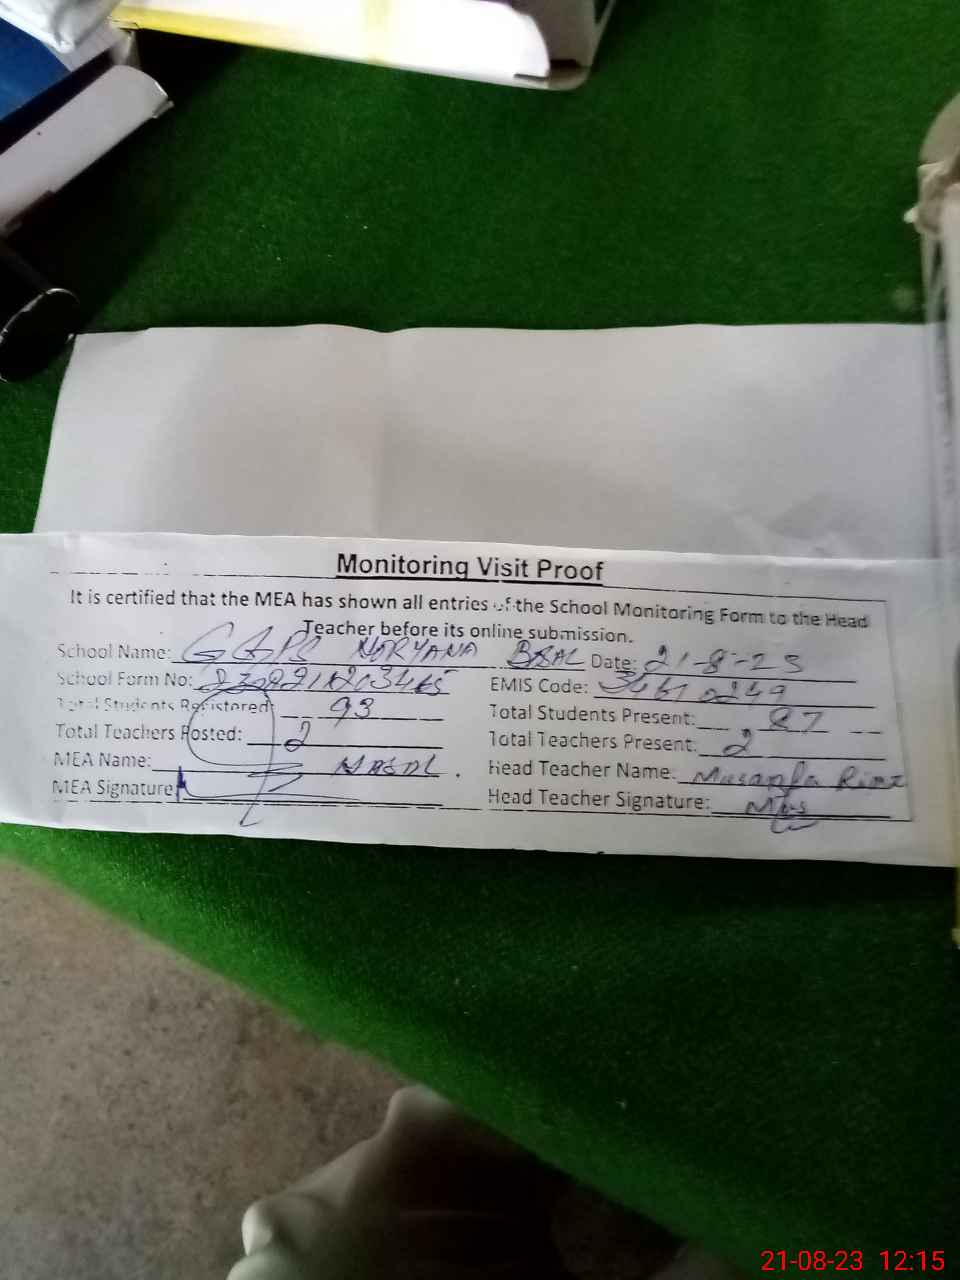 Monitoring Visit Proof
It is certified that the MEA has shown all entries of the School Monitoring Form to the Head
Teacher before its online submission.
School Name: GGPS NORYANA Date: 21-8-23
School Form No: EMIS Code:
Total Students Registered: 93 Total Students Present: 87
Total Teachers Posted: 2 Total Teachers Present: 2
MEA Name: Head Teacher Name:
MEA Signature Head Teacher Signature: Mus
21-08-23 12:15